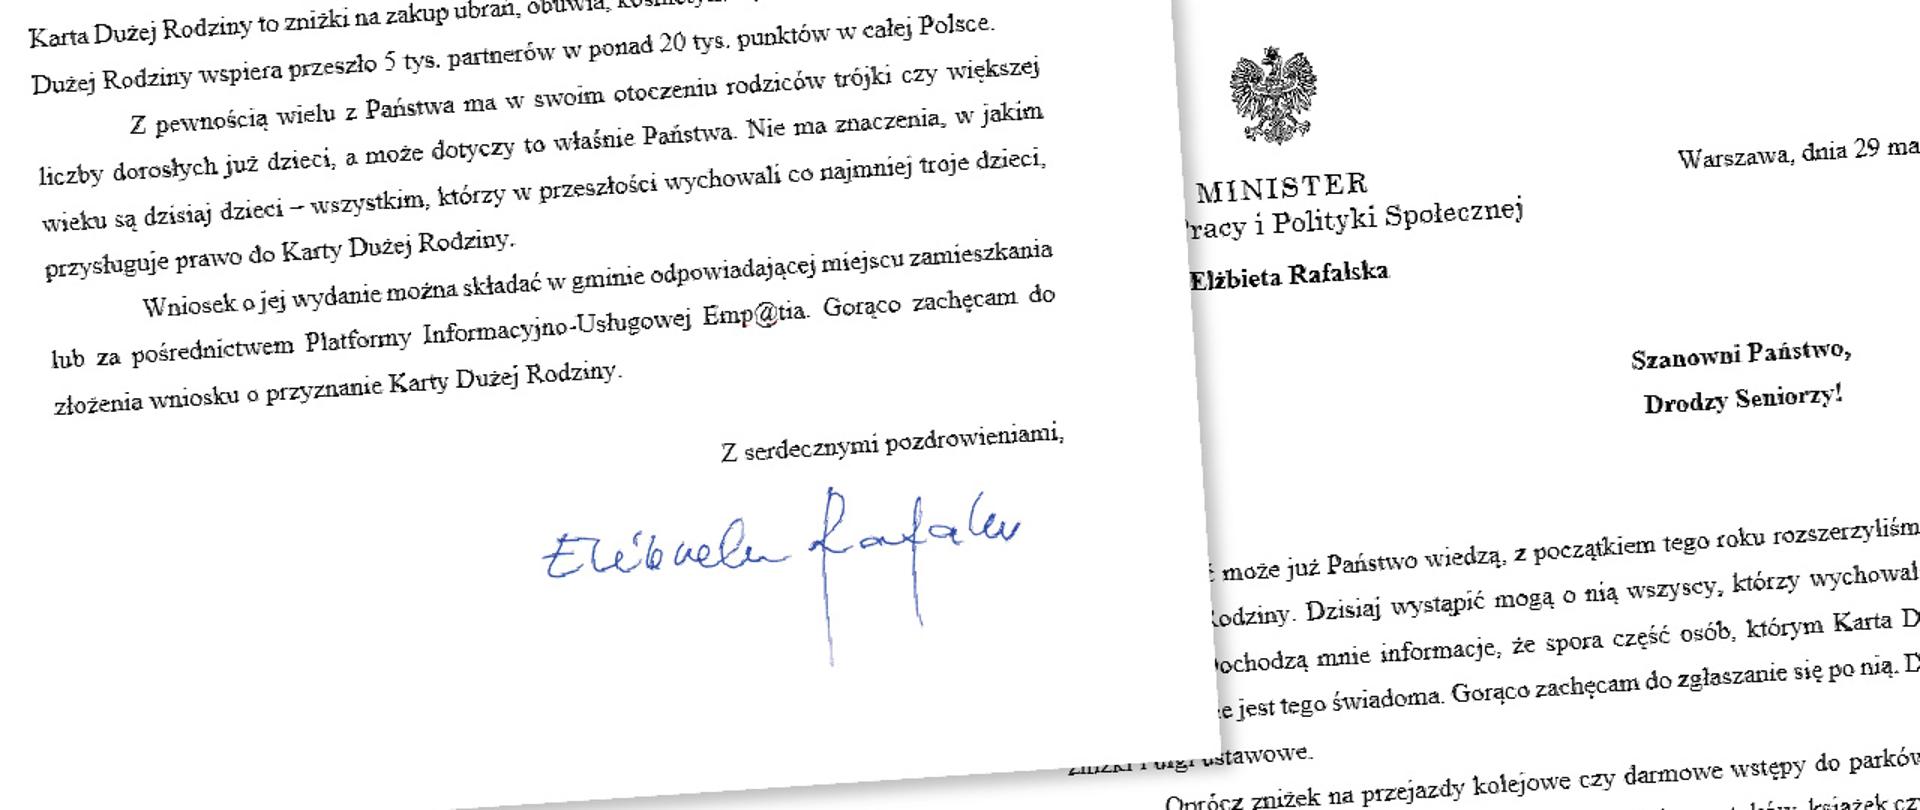 Karta Dużej Rodziny to zniżki na zakup ubrań, obuwia,
Dużej Rodziny wspiera przeszło 5 tys. partnerów w ponad 20 tys. punktów w całej Polsce.
Z pewnością wielu z Państwa ma w swoim otoczeniu rodziców trójki czy większej
liczby dorosłych już dzieci, a może dotyczy to właśnie Państwa. Nie ma znaczenia, w jakim
wieku są dzisiaj dzieci – wszystkim, którzy w przeszłości wychowali co najmniej troje dzieci,
przysługuje prawo do Karty Dużej Rodziny.
Wniosek o jej wydanie można składać w gminie odpowiadającej miejscu zamieszkania
lub za pośrednictwem Platformy Informacyjno-Usługowej Emp@tia. Gorąco zachęcam do
złożenia wniosku o przyznanie Karty Dużej Rodziny.
Z serdecznymi pozdrowieniami,
Elżbieta Rafalska
Warszawa, dnia 29 ma
MINISTER
racy i Polityki Społecznej
Elżbieta Rafalska
Szanowni Państwo,
Drodzy Seniorzy!
może już Państwo wiedzą, z początkiem tego roku rozszerzyliśm
odziny. Dzisiaj wystąpić mogą o nią wszyscy, którzy wychowal
ochodzą mnie informacje, że spora część osób, którym Karta D
e jest tego świadoma. Gorąco zachęcam do zgłaszanie się po nią. D
zniżki i ulgi ustawowe.
Oprócz zniżek na przejazdy kolejowe czy darmowe wstępy do parków
książek cz